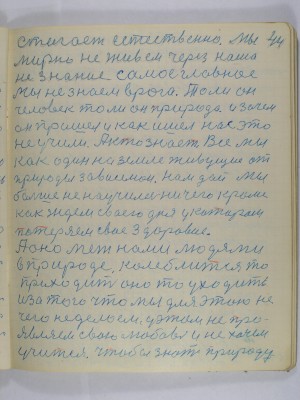 стигает естественно. Мы 44
мирно не живем через наша
не знание самое главное
мы не знаем врога. То ли он
человек то ли он природа и зачем
он пришел и как ишел нас это
не учили. А кто знает Все мы
как один на земле живущие от
природы зависемои, нам дай мы
больше не научили ничего кроме
как ждем своего дня у котором
потеряем свае Здоровие.
А оно меж нами людями
в природе, колеблится то
приходить оно то уходить
изза того что мы для этого не
чего не делоем, у этом не про-
являем свою любовь и не хочем
учится, чтобы знать природу